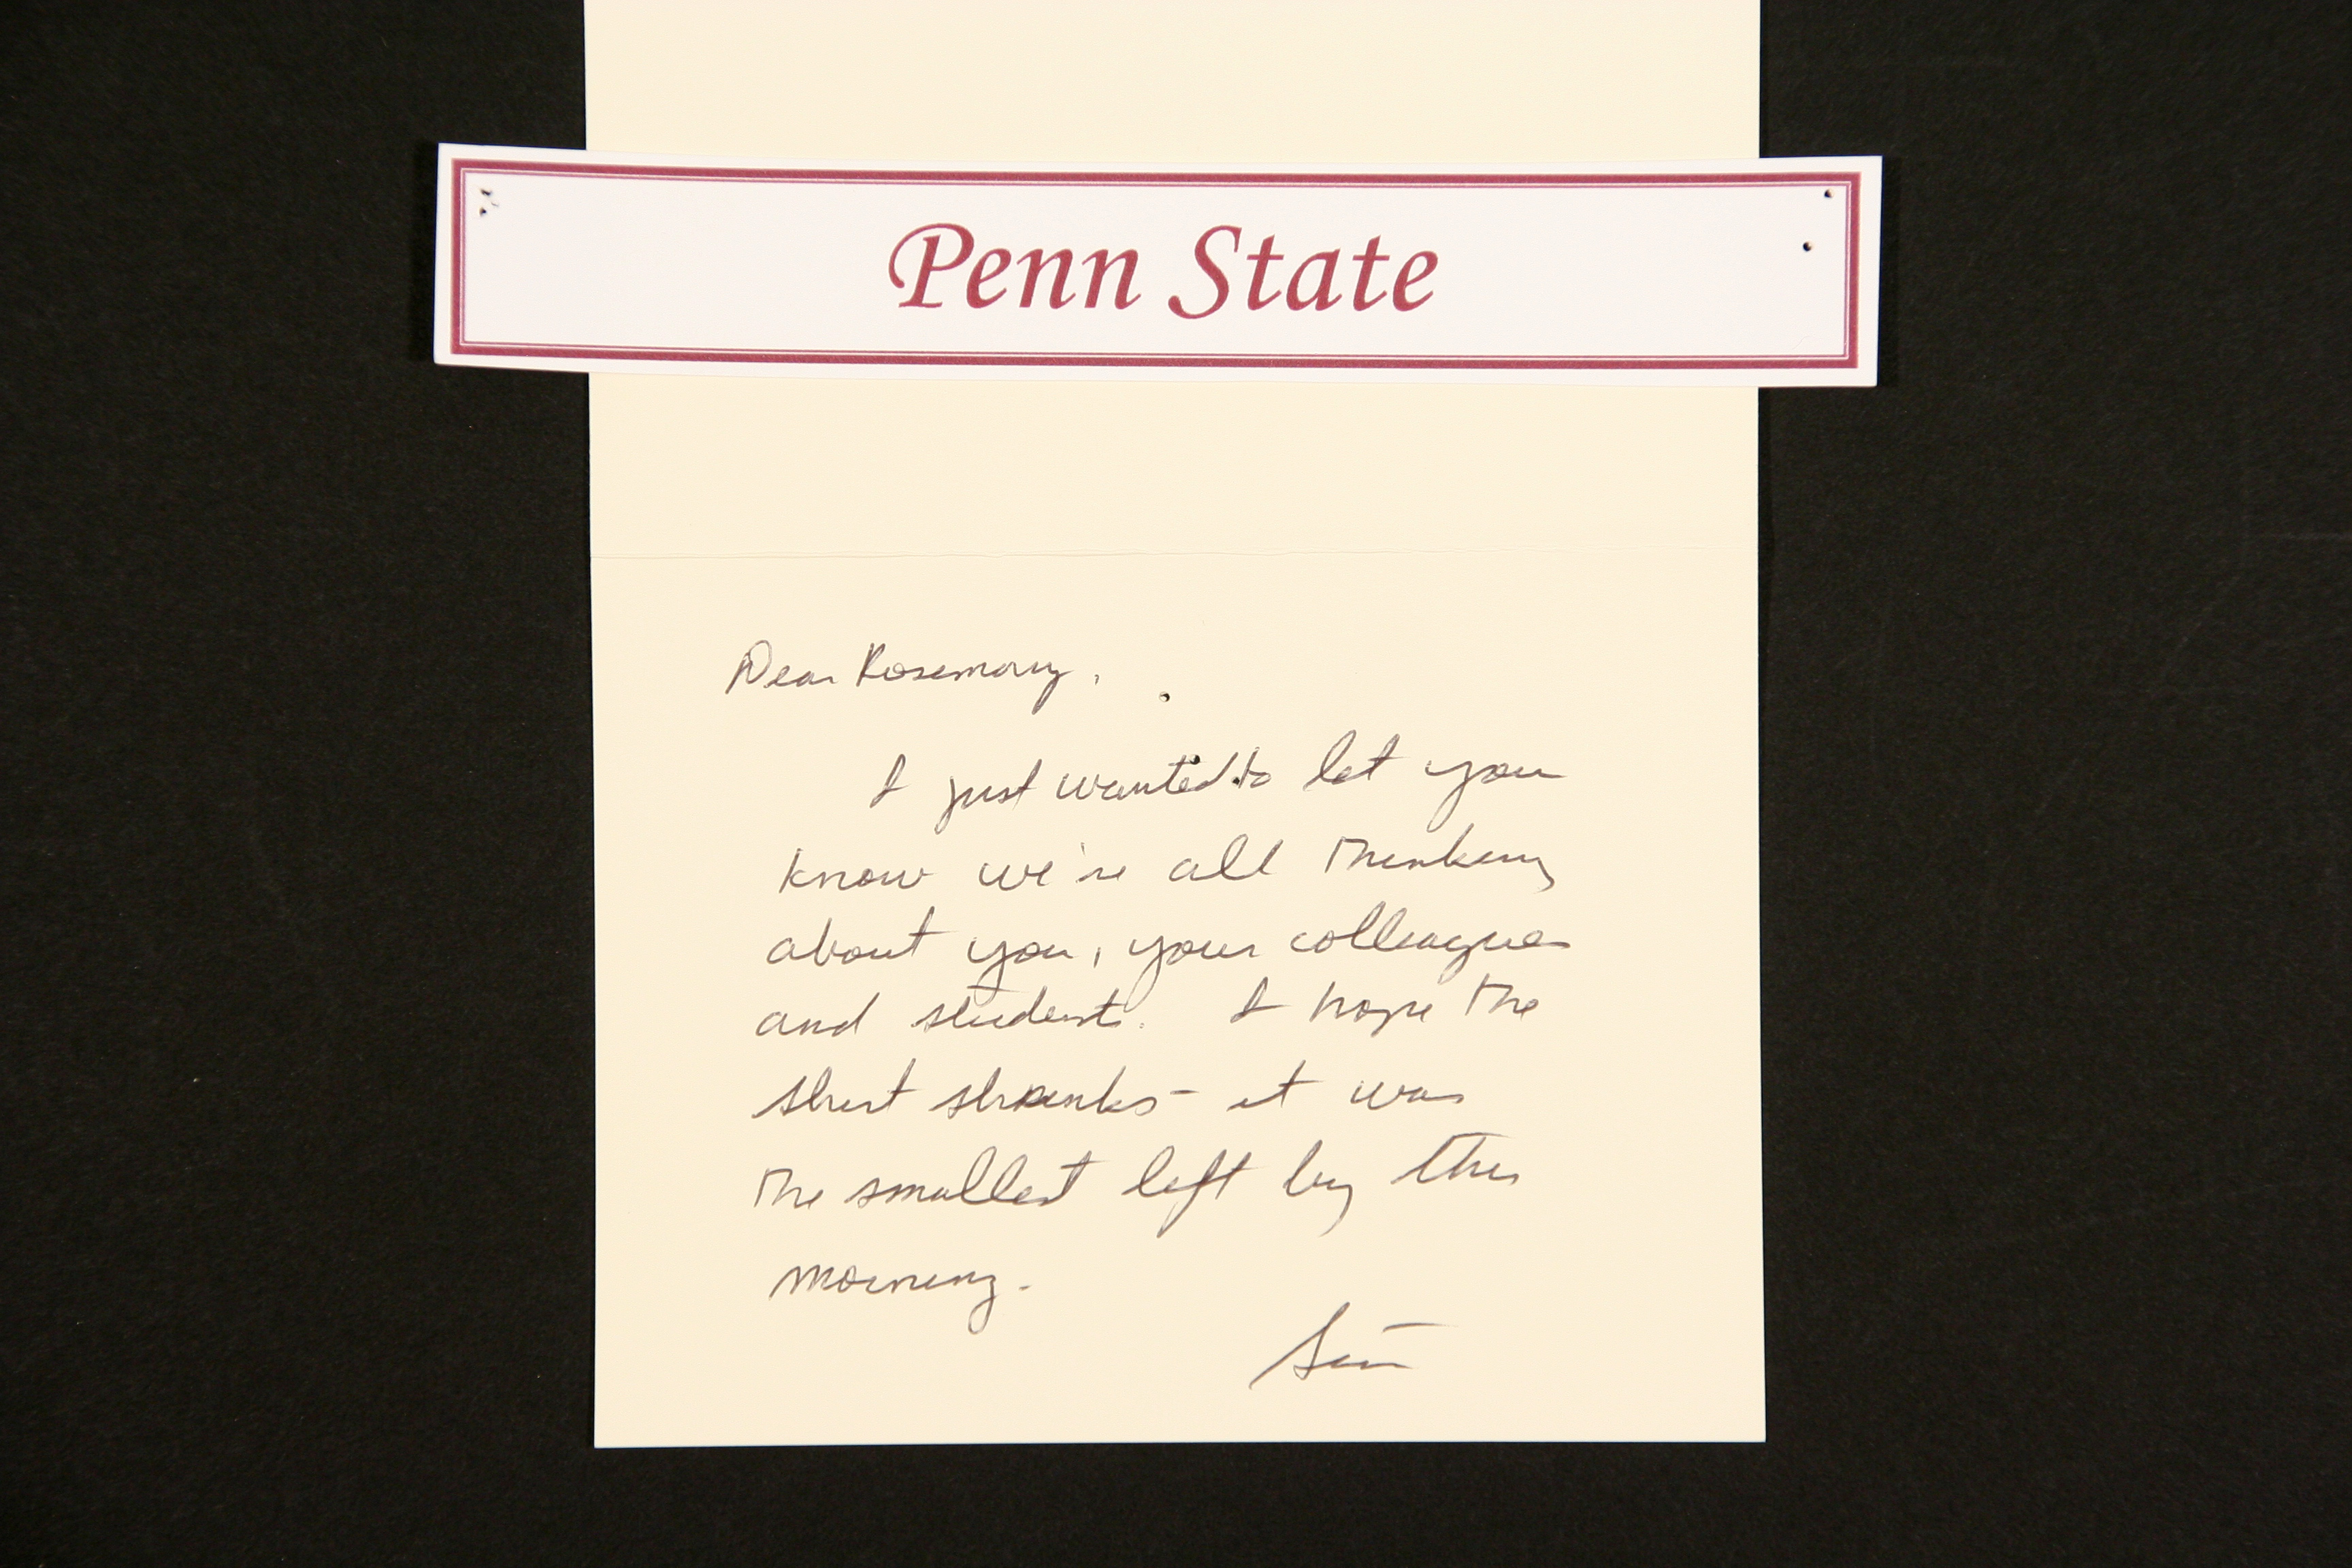 Penn State
Dear Rosemary,
I just wanted to let you
know we're all thinking
about you, your colleagues
and students. I hope the
shirt shrinks - it was
the smallest left by this
morning.